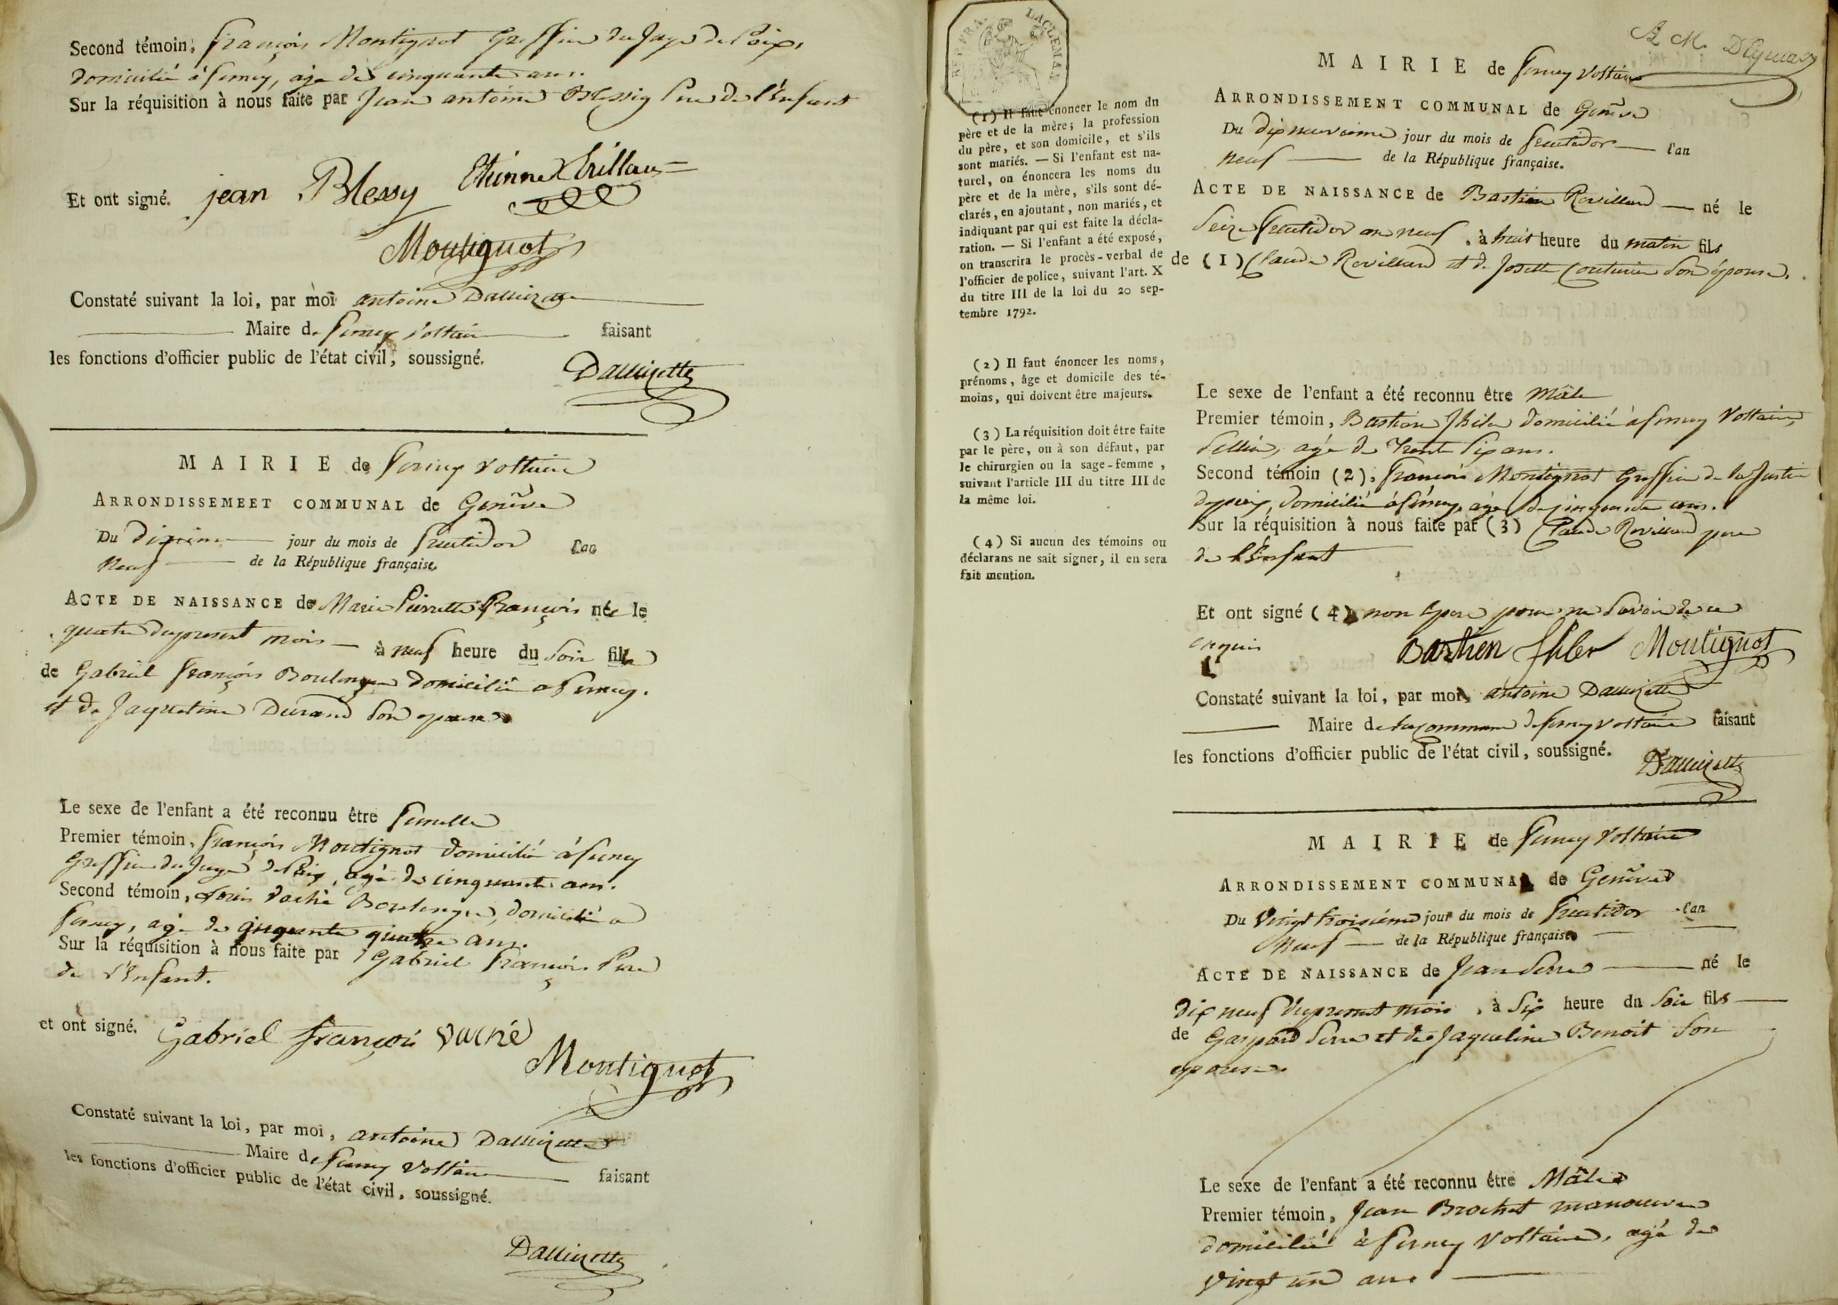 Second témoin, françois Montignot Greffier du Juge de Paix,
domicilié à ferney, âgé de cinquante ans.
Sur la réquisition à nous faite par Jean antoine Blessy Pere de l'Enfant
Et ont signé. jean Blessy Etienne
Montignot
Constaté suivant la loi, par moi antoine Dallizette
Maire de ferney Voltaire faisant
les fonctions d'officier public de l'état civil, soussigné.
Dallizette
MAIRIE de ferney Voltaire
ARRONDISSEMEET COMMUNAL de Genêve
Du dixieme jour du mois de fructidor l'an
Neuf de la République française.
ACTE DE NAISSANCE de Marie Pierrette François née le
quatre du present mois à neuf heure du soir fille
de Gabriel françois Boulenger domicilié a ferney.
et de Jaqueline Durand son epouse
Le sexe de l'enfant a été reconnu être femelle
Premier témoin, françois Montignot domicilié à ferney
Greffier du Juge de Paix, agé de cinquante ans.
Second témoin, Louis Vaché Boulenger, domicilié a
ferney, agé de cinquante quatre ans.
Sur la réquisition à nous faite par Gabriel françois Pere
de l'Enfant.
et ont signé. Gabriel françois vaché
Montignot
Constaté suivant la loi, par moi, antoine Dallizette
Maire de ferney Voltaire faisant
les fonctions d'officier public de l'état civil, soussigné.
Dallizette
REP. FRA. LAC LEMAN
(1) Il faut énoncer le nom du
père et de la mère; la profession
du père, et son domicile, et s'ils
sont mariés. — Si l'enfant est na-
turel, on énoncera les noms du
père et de la mère, s'ils sont dé-
clarés, en ajoutant, non mariés, et
indiquant par qui est faite la décla-
ration. — Si l'enfant a été exposé,
on transcrira le procès-verbal de
l'officier de police, suivant l'art. X
du titre III de la loi du 20 sep-
tembre 1792.
(2) Il faut énoncer les noms,
prénoms, âge et domicile des té-
moins, qui doivent être majeurs.
(3) La réquisition doit être faite
par le père, ou à son défaut, par
le chirurgien ou la sage-femme,
suivant l'article III du titre III de
la même loi.
(4) Si aucun des témoins ou
déclarans ne sait signer, il en sera
fait mention.
MAIRIE de ferney Voltaire
ARRONDISSEMENT COMMUNAL de Genêve
Du dixneuvieme jour du mois de fructidor l'an
neuf de la République française.
ACTE DE NAISSANCE de Bastian Revilliard né le
Seize fructidor an neuf, à huit heure du matin fils
de (1) Claude Revilliard et de Josette Couturier son épouse.
Le sexe de l'enfant a été reconnu être Mâle
Premier témoin, Bastian domicilié à ferney Voltaire,
Sellier, agé de trente six ans.
Second témoin (2), françois Montignot Greffier de la Justice
de paix, domicilié à ferney, agé de cinquante ans.
Sur la réquisition à nous faite par (3) Claude Revilliard pere
de l'Enfant
Et ont signé (4) non le pere pour ne savoir de ce
enquis Bastien Montignot
Constaté suivant la loi, par moi, antoine Dallizette
Maire de la commune de ferney Voltaire faisant
les fonctions d'officier public de l'état civil, soussigné.
Dallizette
MAIRIE de ferney Voltaire
ARRONDISSEMENT COMMUNAL de Genêve
Du Vingt troisième jour du mois de fructidor l'an
Neuf de la République française.
ACTE DE NAISSANCE de Jean Serre né le
dix neuf du present mois, à Six heure du Soir fils
de Gaspard Serre et de Jaqueline Benoit son
epouse.
Le sexe de l'enfant a été reconnu être Mâle
Premier témoin, Jean Brochet manouvre
domicilié à ferney Voltaire, agé de
Vingt un ans.